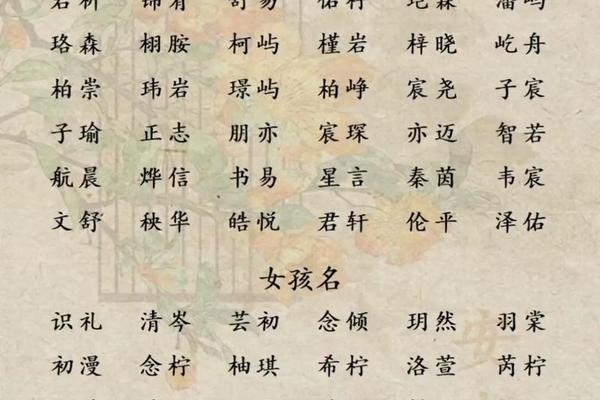 珞森 栩胺 柯屿 槿岩 梓晓 屹舟
柏崇 玮岩 璟屿 柏峥 宸尧 子宸
子瑜 正志 朋亦 宸琛 亦迈 智若
航晨 烨信 书易 星言 秦茵 韦宸
文舒 秧华 皓悦 君轩 伦平 泽佑
女孩名
识礼 清岑 芸初 念倾 玥然 羽棠
初漫 念柠 柚琪 希柠 洛萱 芮柠